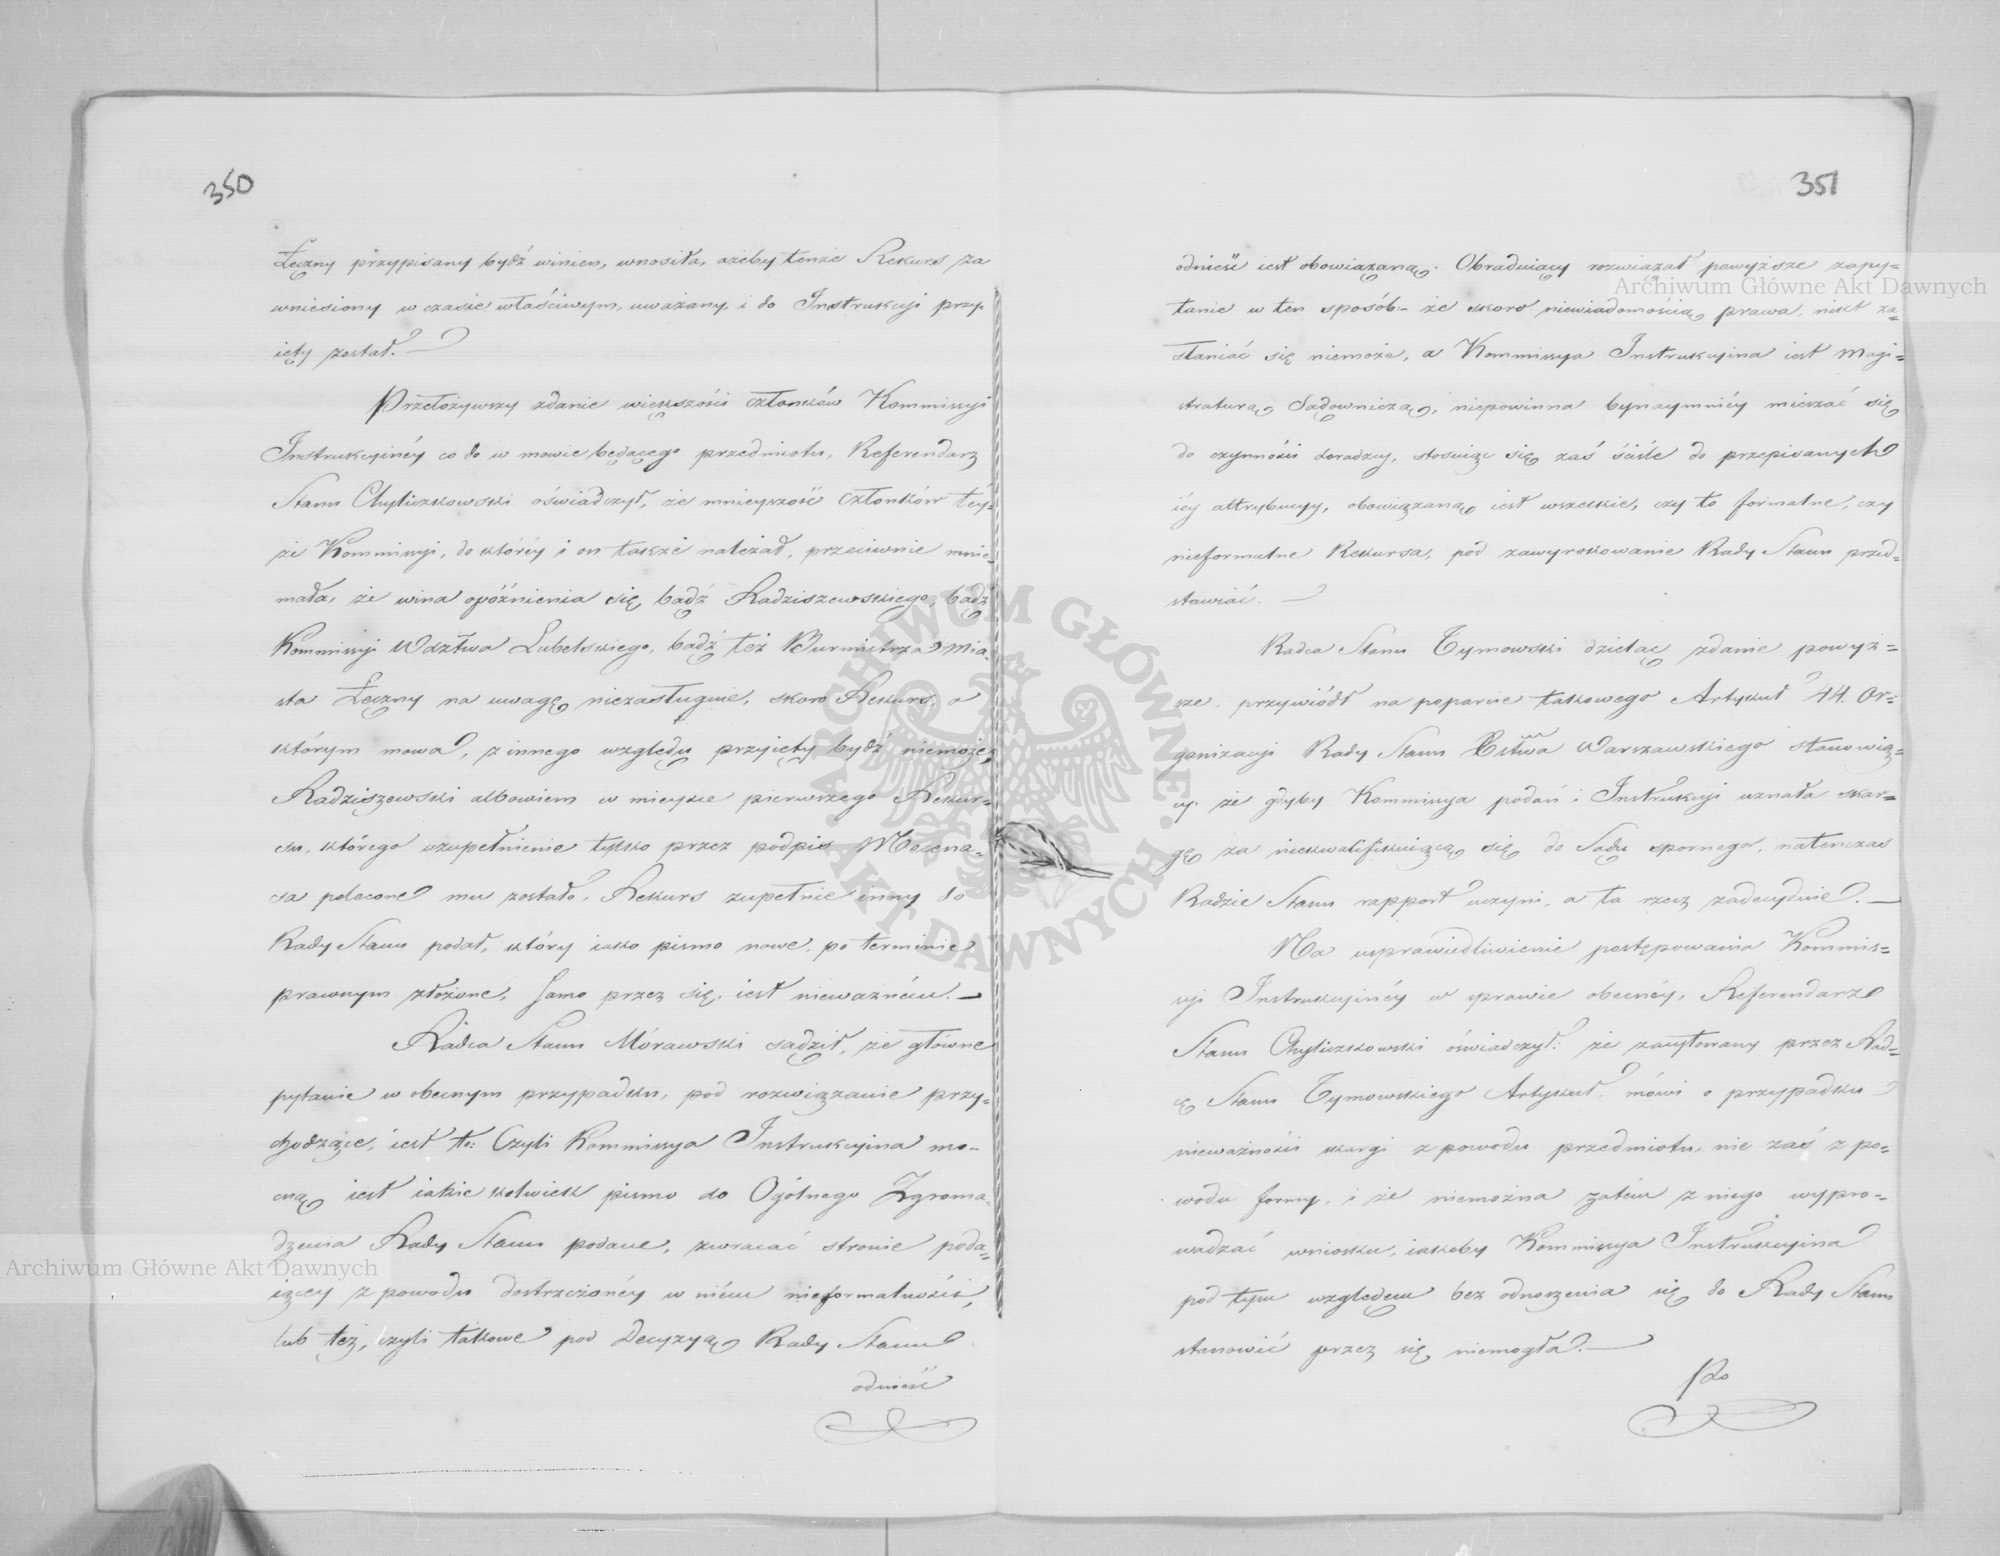 350
Łęczny przypisany bydź winien, wnosiła, ażeby tenże Rekurs za
wniesiony w czasie właściwym, uważany, i do Instrukcji przy-
ięty został.
Przełożywszy zdanie większości członków Kommissyi
Instrukcyinéy co do w mowie będącego przedmiotu, Referendarz
Stanu Chyliczkowski oświadczył, że mnieyszość członków téy-
że Kommissyi, do któréy i on także należał, przeciwnie mnie-
mała, że wina opóźnienia się, bądź Radziszewskiego, bądź
Kommissyi Wdztwa Lubelskiego, bądź też Burmistrza Mia-
sta Łęczny na uwagę niezasługuie, skoro Rekurs, o
którym mowa, z innego względu przyięty bydź niemoże,
Radziszewski albowiem w mieysce pierwszego Rekur-
su, którego uzupełnienie tylko przez podpis Mecena-
sa polecone mu zostało, Rekurs zupełnie inny do
Rady Stanu podał, który iako pismo nowe, po terminie
prawnym złożone, samo przez się, iest nieważném.—
Radca Stanu Morawski sądził, że główne
pytanie w obecnym przypadku, pod rozwiązanie przy-
chodzące, iest to: Czyli Kommissya Instrukcyina mo-
cną iest iakie kolwiek pismo do Ogólnego Zgroma-
dzenia Rady Stanu podane, zwracać stronie poda-
iącey z powodu dostrzeżonéy w niém nieformalności,
lub też, czyli takowe pod Decyzyą Rady Stanu
odnieść
351
odnieść iest obowiązaną. Obraduiący rozwiązał powyższe zapy=
tanie w ten sposób:- że skoro niewiadomością prawa, nikt za=
słaniać się niemoże, a Kommissya Instrukcyina iest Magi=
straturą Sądowniczą, niepowinna bynaymniéy mieszać się
do czynności doradzcy, stosuiąc się zaś ściśle do przepisanych
iéy attrybucyy, obowiązaną iest wszelkie, czy to formalne, czy
nieformalne Rekursa, pod zawyrokowanie Rady Stanu przed=
stawiać.
Radca Stanu Tymowski dzieląc zdanie powyż=
sze, przywiódł na poparcie takowego Artykuł 44. Or=
ganizacji Rady Stanu Xstwa Warszawskiego stanowią=
cy: że gdyby Kommissya podań i Instrukcji uznała skar=
gę za niekwalifikuiącą się do Sądu spornego, natenczas
Radzie Stanu rapport uczyni, a ta rzecz zadecyduie.—
Na usprawiedliwienie postępowania Kommis=
syi Instrukcyinéy w sprawie obecnéy, Referendarz
Stanu Chyliczkowski oświadczył: że zacytowany przez Rad=
cę Stanu Tymowskiego Artykuł, mówi o przypadku
nieważności skargi z powodu przedmiotu, nie zaś z po=
wodu formy, i że niemożna zatém z niego wypro=
wadzać wniosku, iakoby Kommissya Instrukcyina
pod tym względem bez odnoszenia się do Rady Stanu
stanowić przez się niemogła.—
Po
Archiwum Główne Akt Dawnych
Archiwum Główne Akt Dawnych
ARCHIWUM GŁÓWNE AKT DAWNYCH